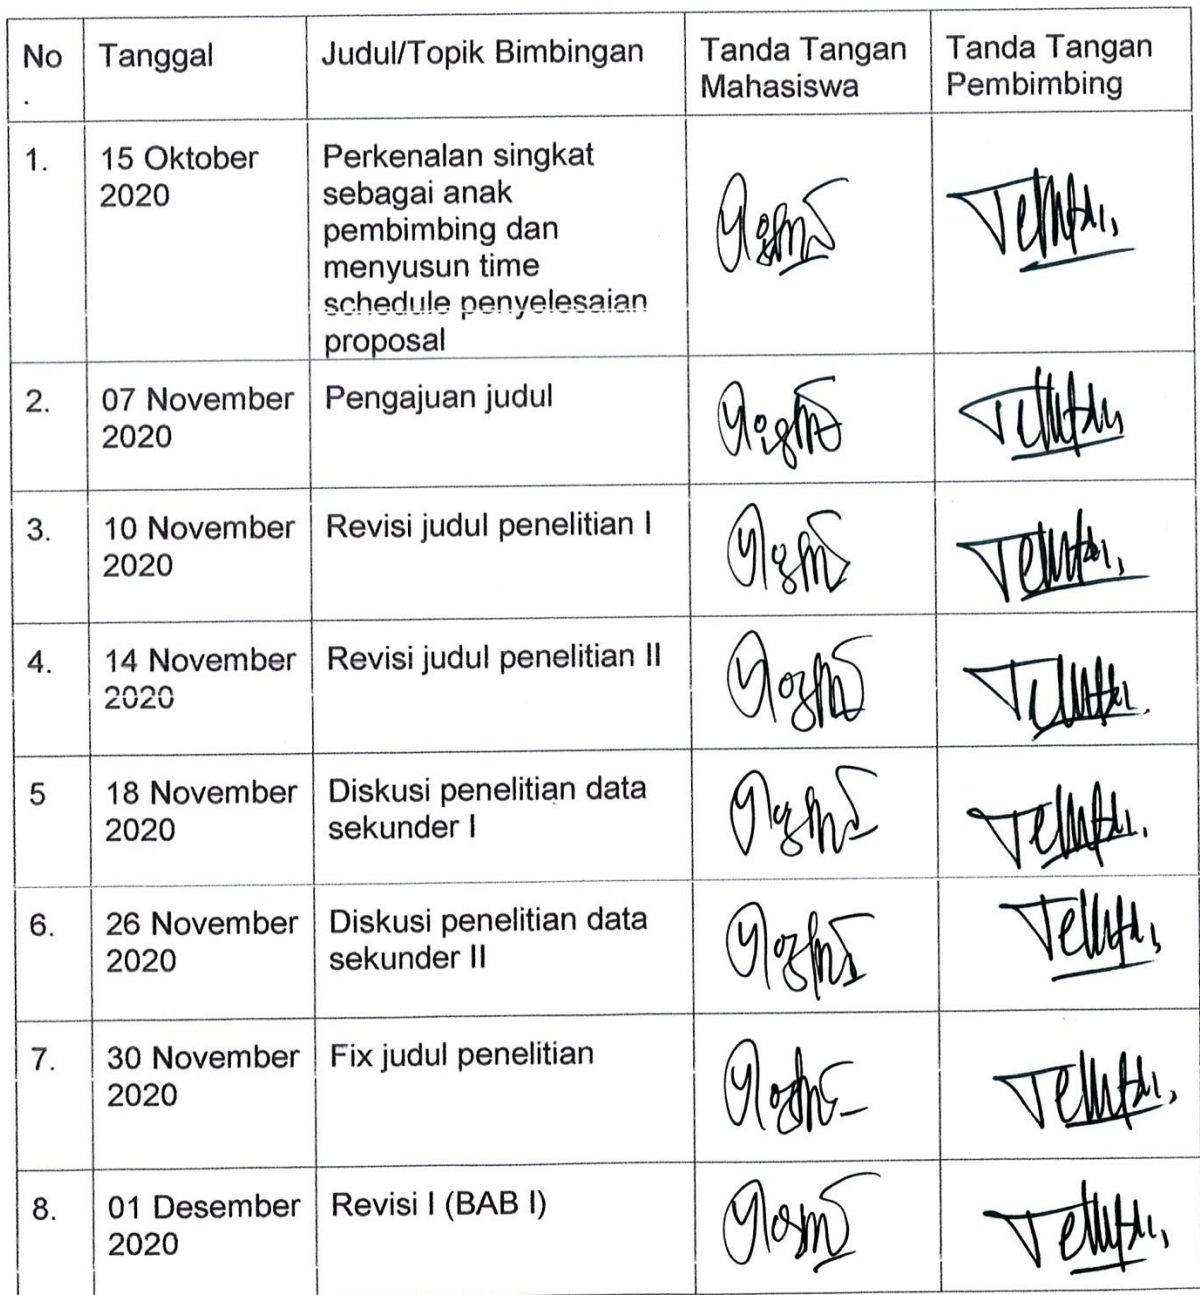 No
.
Tanggal
Judul/Topik Bimbingan
Tanda Tangan
Mahasiswa
Tanda Tangan
Pembimbing
1.
15 Oktober
2020
Perkenalan singkat
sebagai anak
pembimbing dan
menyusun time
schedule penyelesaian
proposal
2.
07 November
2020
Pengajuan judul
3.
10 November
2020
Revisi judul penelitian I
4.
14 November
2020
Revisi judul penelitian II
5
18 November
2020
Diskusi penelitian data
sekunder I
6.
26 November
2020
Diskusi penelitian data
sekunder II
7.
30 November
2020
Fix judul penelitian
8.
01 Desember
2020
Revisi I (BAB I)